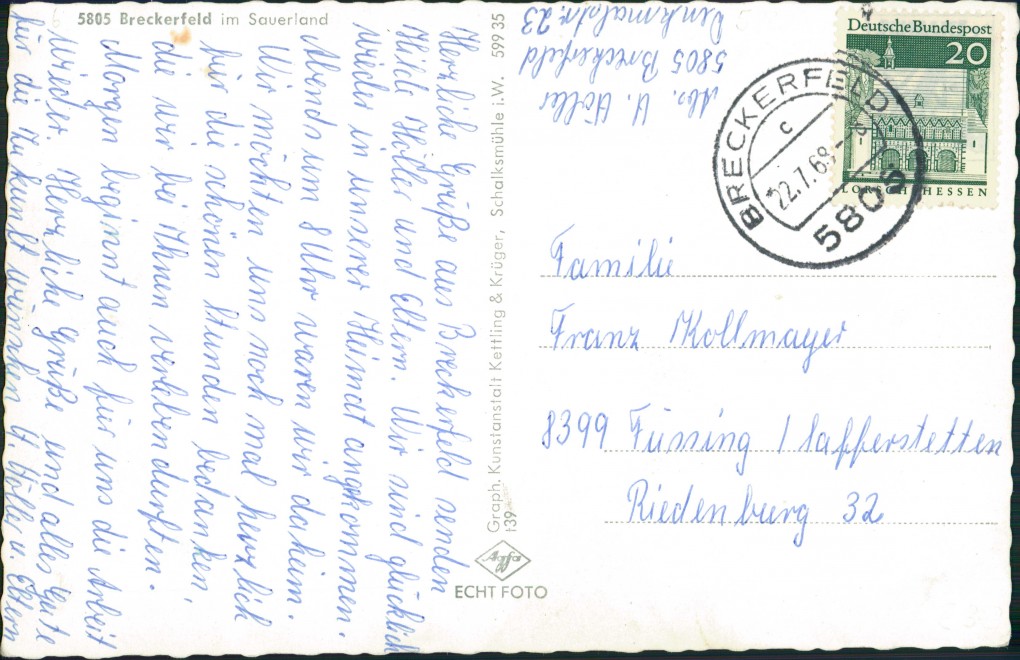 5805 Breckerfeld im Sauerland
Herzliche Grüße aus Breckerfeld senden
Hilde Höller und Eltern. Wir sind glücklich
wieder in unserer Heimat angekommen.
Abends um 8 Uhr waren wir daheim.
Wir möchten uns noch mal herzlich
für die schönen Stunden bedanken,
die wir bei Ihnen verleben durften.
Morgen beginnt auch für uns die Arbeit
wieder. Herzliche Grüße und alles Gute
für die Zukunft wünschen H Höller u. Eltern
Graph. Kunstanstalt Kettling & Krüger, Schalksmühle i.W. 599 35
139
Agfa
ECHT FOTO
Abs. H. Höller
5805 Breckerfeld
Denkmalstr. 23
Deutsche Bundespost
20
LORSCH/HESSEN
BRECKERFELD
c
22.7.68
5805
Familie
Franz Kollmayer
8399 Füssing / Safferstetten
Riedenburg 32